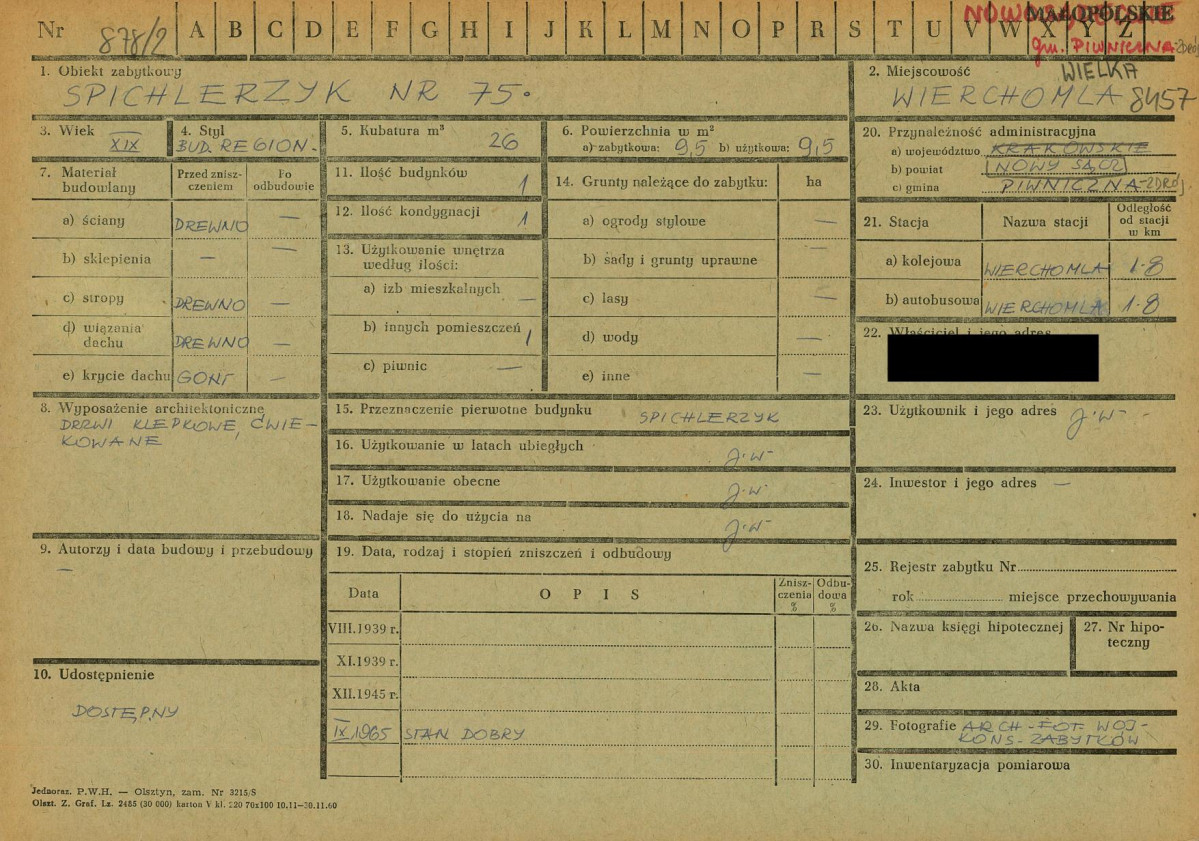 Nr 878/2 A B C D E F G H I J K L M N O P R S T U V W X Y Z
MAŁOPOLSKIE
gm. PIWNICZNA-ZDRÓJ
1. Obiekt zabytkowy
SPICHLERZYK NR 75.
2. Miejscowość
WIELKA
WIERCHOMLA 8457
3. Wiek
XIX
4. Styl
BUD. REGION.
5. Kubatura m³
26
6. Powierzchnia w m²
a) zabytkowa: 9,5 b) użytkowa: 9,5
7. Materiał budowlany
Przed znisz-
czeniem
Po
odbudowie
a) ściany DREWNO —
b) sklepienia — —
c) stropy DREWNO —
d) wiązania
dachu DREWNO —
e) krycie dachu GONT —
8. Wyposażenie architektoniczne
DRZWI KLEPKOWE, ĆWIE-
KOWANE
9. Autorzy i data budowy i przebudowy
—
10. Udostępnienie
DOSTĘPNY
11. Ilość budynków 1
12. Ilość kondygnacji 1
13. Użytkowanie wnętrza
według ilości:
a) izb mieszkalnych —
b) innych pomieszczeń 1
c) piwnic —
14. Grunty należące do zabytku: ha
a) ogrody stylowe —
b) sady i grunty uprawne —
c) lasy —
d) wody —
e) inne —
15. Przeznaczenie pierwotne budynku SPICHLERZYK
16. Użytkowanie w latach ubiegłych J.W-
17. Użytkowanie obecne J.W-
18. Nadaje się do użycia na J.W-
19. Data, rodzaj i stopień zniszczeń i odbudowy
Data OPIS
Znisz-
czenia
%
Odbu-
dowa
%
VIII.1939 r.
XI.1939 r.
XII.1945 r.
IX 1965 STAN DOBRY
20. Przynależność administracyjna
a) województwo KRAKOWSKIE
b) powiat NOWY SĄCZ
c) gmina PIWNICZNA-ZDRÓJ.
21. Stacja Nazwa stacji
Odległość
od stacji
w km
a) kolejowa WIERCHOMLA 1-8
b) autobusowa WIERCHOMLA 1-8
22. Właściciel i jego adres
23. Użytkownik i jego adres J.W-
24. Inwestor i jego adres —
25. Rejestr zabytku Nr
rok miejsce przechowywania
26. Nazwa księgi hipotecznej
27. Nr hipo-
teczny
28. Akta
29. Fotografie ARCH-FOT. WOJ-
KONS-ZABYTKÓW
30. Inwentaryzacja pomiarowa
Jednoraz. P.W.H. — Olsztyn, zam. Nr 3215/S
Olszt. Z. Graf. Lz. 2485 (30 000) karton V kl. 220 70x100 10.11—30.11.60